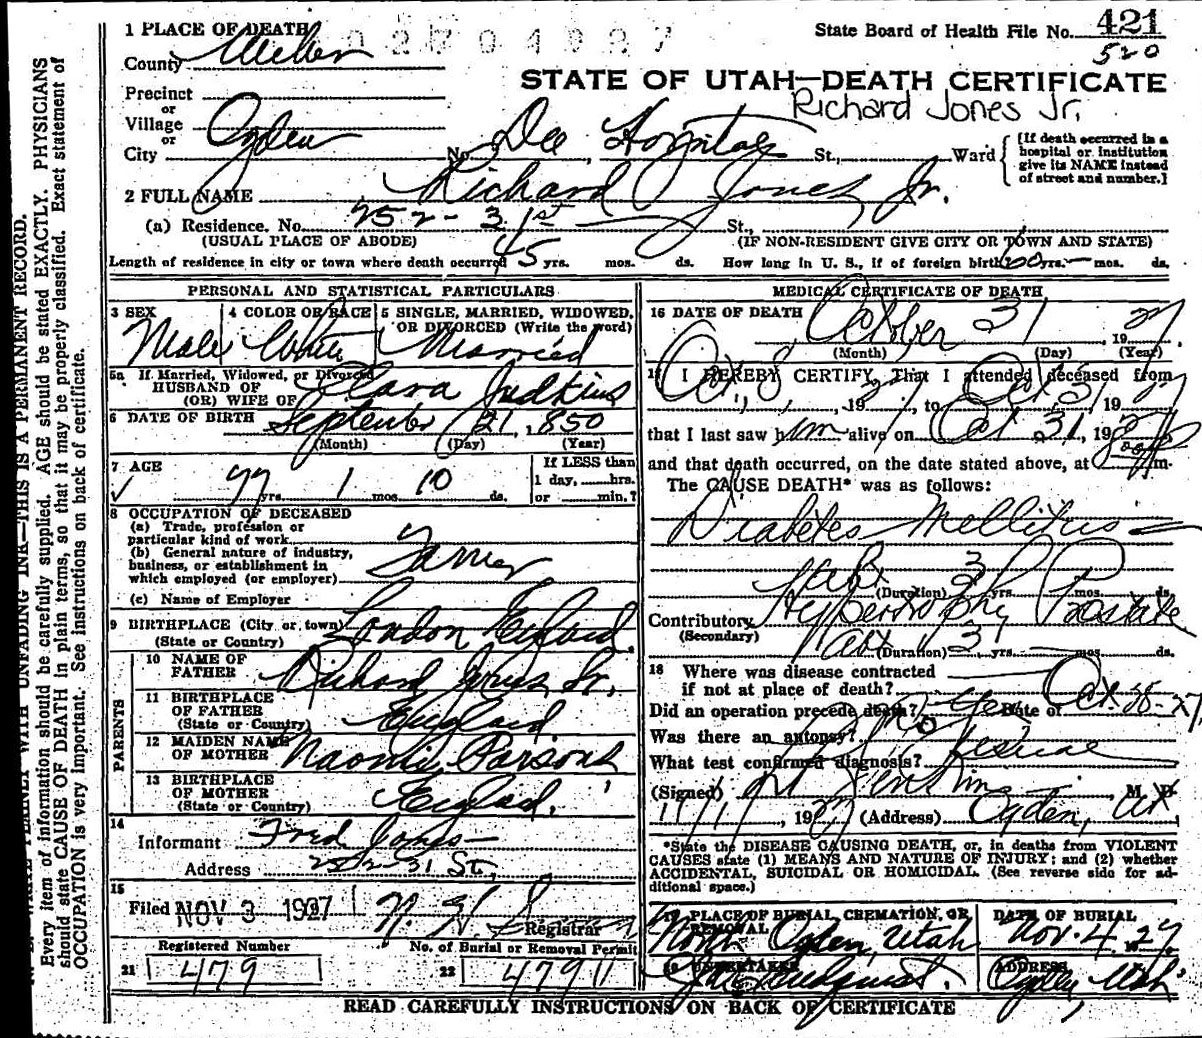 1 PLACE OF DEATH
State Board of Health File No. 421
520
County Weber
STATE OF UTAH—DEATH CERTIFICATE
Richard Jones Jr.
Precinct
or
Village
or
City Ogden No. Dee Hospital St., Ward
[If death occurred in a hospital or institution give its NAME instead of street and number.]
2 FULL NAME Richard Jones Jr.
(a) Residence. No. 252 - 31st St.,
(USUAL PLACE OF ABODE) (IF NON-RESIDENT GIVE CITY OR TOWN AND STATE)
Length of residence in city or town where death occurred 45 yrs. mos. ds. How long in U. S., if of foreign birth? 60 yrs. — mos. ds.
PERSONAL AND STATISTICAL PARTICULARS
3 SEX Male
4 COLOR OR RACE White
5 SINGLE, MARRIED, WIDOWED, OR DIVORCED (Write the word) Married
5a If Married, Widowed, or Divorced
HUSBAND OF
(OR) WIFE OF Clara Judkins
6 DATE OF BIRTH September 21, 1850
(Month) (Day) (Year)
7 AGE 77 yrs. 1 mos. 10 ds.
If LESS than 1 day, hrs. or min.?
8 OCCUPATION OF DECEASED
(a) Trade, profession or particular kind of work
(b) General nature of industry, business, or establishment in which employed (or employer)
(c) Name of Employer
9 BIRTHPLACE (City or town) London England
(State or Country)
PARENTS
10 NAME OF FATHER Richard Jones Sr.
11 BIRTHPLACE OF FATHER England
(State or Country)
12 MAIDEN NAME OF MOTHER Naomi Parsons
13 BIRTHPLACE OF MOTHER England.
(State or Country)
14
Informant Fred Jones
Address 252-31 St.
15
Filed NOV 3 1927 Registrar
Registered Number No. of Burial or Removal Permit
21 479 22 479
MEDICAL CERTIFICATE OF DEATH
16 DATE OF DEATH October 31, 1927
(Month) (Day) (Year)
17 I HEREBY CERTIFY, That I attended deceased from
Oct. 8, 1927, to Oct 31, 1927
that I last saw him alive on Oct 31, 19
and that death occurred, on the date stated above, at m.
The CAUSE DEATH* was as follows:
Diabetes Mellitus
(Duration) yrs. mos. ds.
Contributory Hypertrophy Prostate
(Secondary)
(Duration) 3 yrs. mos. ds.
18 Where was disease contracted
if not at place of death?
Did an operation precede death? Yes Date of Oct. 28-27
Was there an autopsy? No
What test confirmed diagnosis?
(Signed) M. D.
11/1/, 1927 (Address) Ogden, Ut
*State the DISEASE CAUSING DEATH, or, in deaths from VIOLENT
CAUSES state (1) MEANS AND NATURE OF INJURY; and (2) whether
ACCIDENTAL, SUICIDAL OR HOMICIDAL. (See reverse side for ad-
ditional space.)
19 PLACE OF BURIAL, CREMATION, OR REMOVAL North Ogden, Utah
DATE OF BURIAL Nov. 4 1927
UNDERTAKER
ADDRESS Ogden, Utah
READ CAREFULLY INSTRUCTIONS ON BACK OF CERTIFICATE
WRITE PLAINLY WITH UNFADING INK—THIS IS A PERMANENT RECORD.
Every item of information should be carefully supplied. AGE should be stated EXACTLY. PHYSICIANS
should state CAUSE OF DEATH in plain terms, so that it may be properly classified. Exact statement of
OCCUPATION is very important. See instructions on back of certificate.